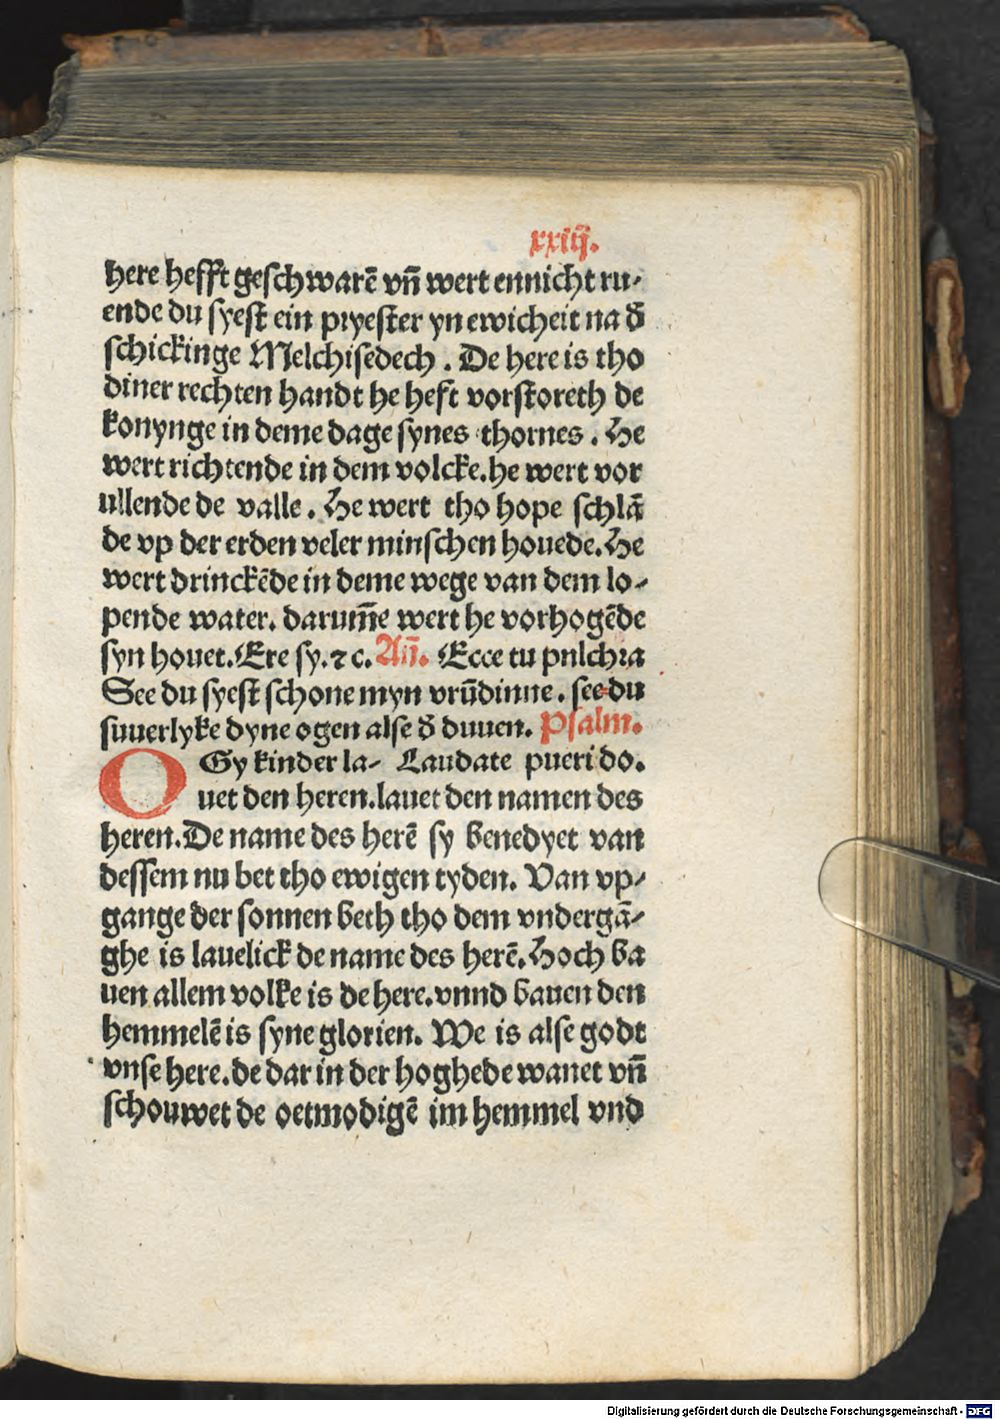 xxiiij.
here hefft geschwarē vn̄ wert ennicht ru⸗
ende du syest ein pryester yn ewicheit na đ
schickinge Melchisedech . De here is tho
diner rechten handt he heft vorstoreth de
konynge in deme dage synes thornes . He
wert richtende in dem volcke. he wert vor
ullende de valle . He wert tho hope schlā
de vp der erden veler minschen houede. He
wert drinckēde in deme wege van dem lo⸗
pende water. darum̄e wert he vorhogēde
syn houet. Ere sy. ⁊ c. An̄. Ecce tu pnlchra
See du syest schone myn vrūdinne . see du
suuerlyke dyne ogen alse đ duuen. Psalm.
O Gy kinder la⸗ Laudate pueri do.
uet den heren. lauet den namen des
heren. De name des herē sy benedyet van
dessem nu bet tho ewigen tyden. Van vp⸗
gange der sonnen beth tho dem vndergā⸗
ghe is lauelick de name des herē. Hoch ba
uen allem volke is de here. vnnd bauen den
hemmelē is syne glorien. We is alse godt
vnse here. de dar in der hoghede wanet vn̄
schouwet de oetmodigē im hemmel vnd
Digitalisierung gefördert durch die Deutsche Forschungsgemeinschaft - DFG